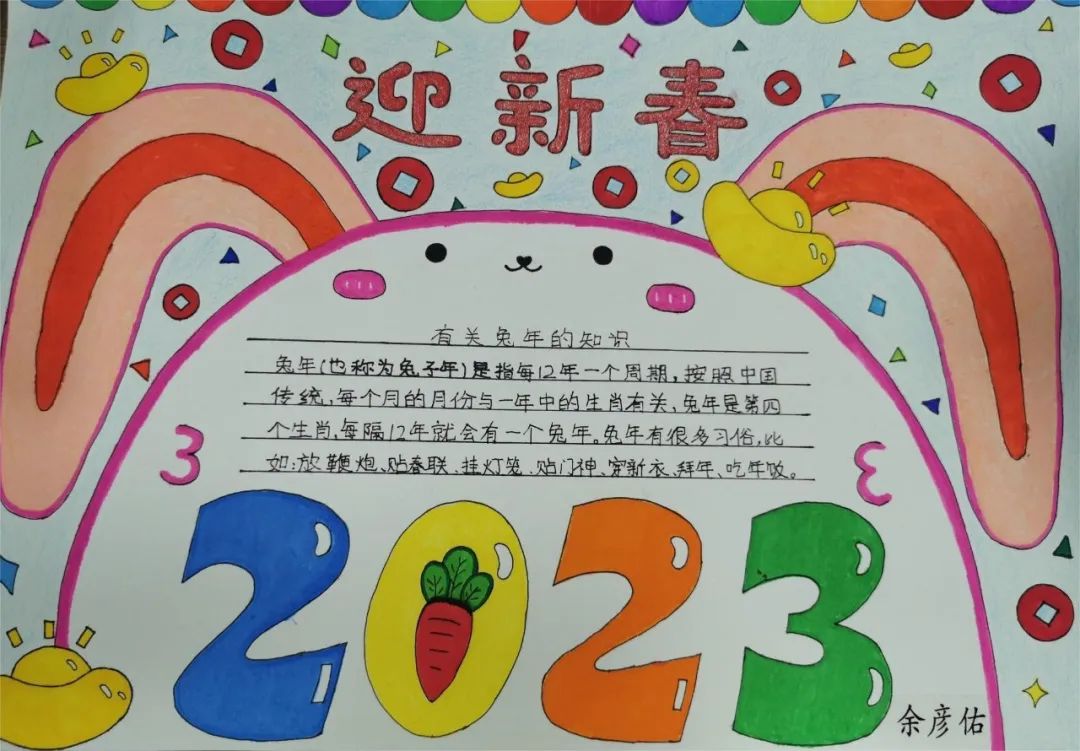 迎新春
有关兔年的知识
兔年(也称为兔子年)是指每12年一个周期，按照中国
传统，每个月的月份与一年中的生肖有关，兔年是第四
个生肖，每隔12年就会有一个兔年。兔年有很多习俗，比
如：放鞭炮、贴春联、挂灯笼、贴门神、穿新衣、拜年、吃年饭。
2023
余彦佑